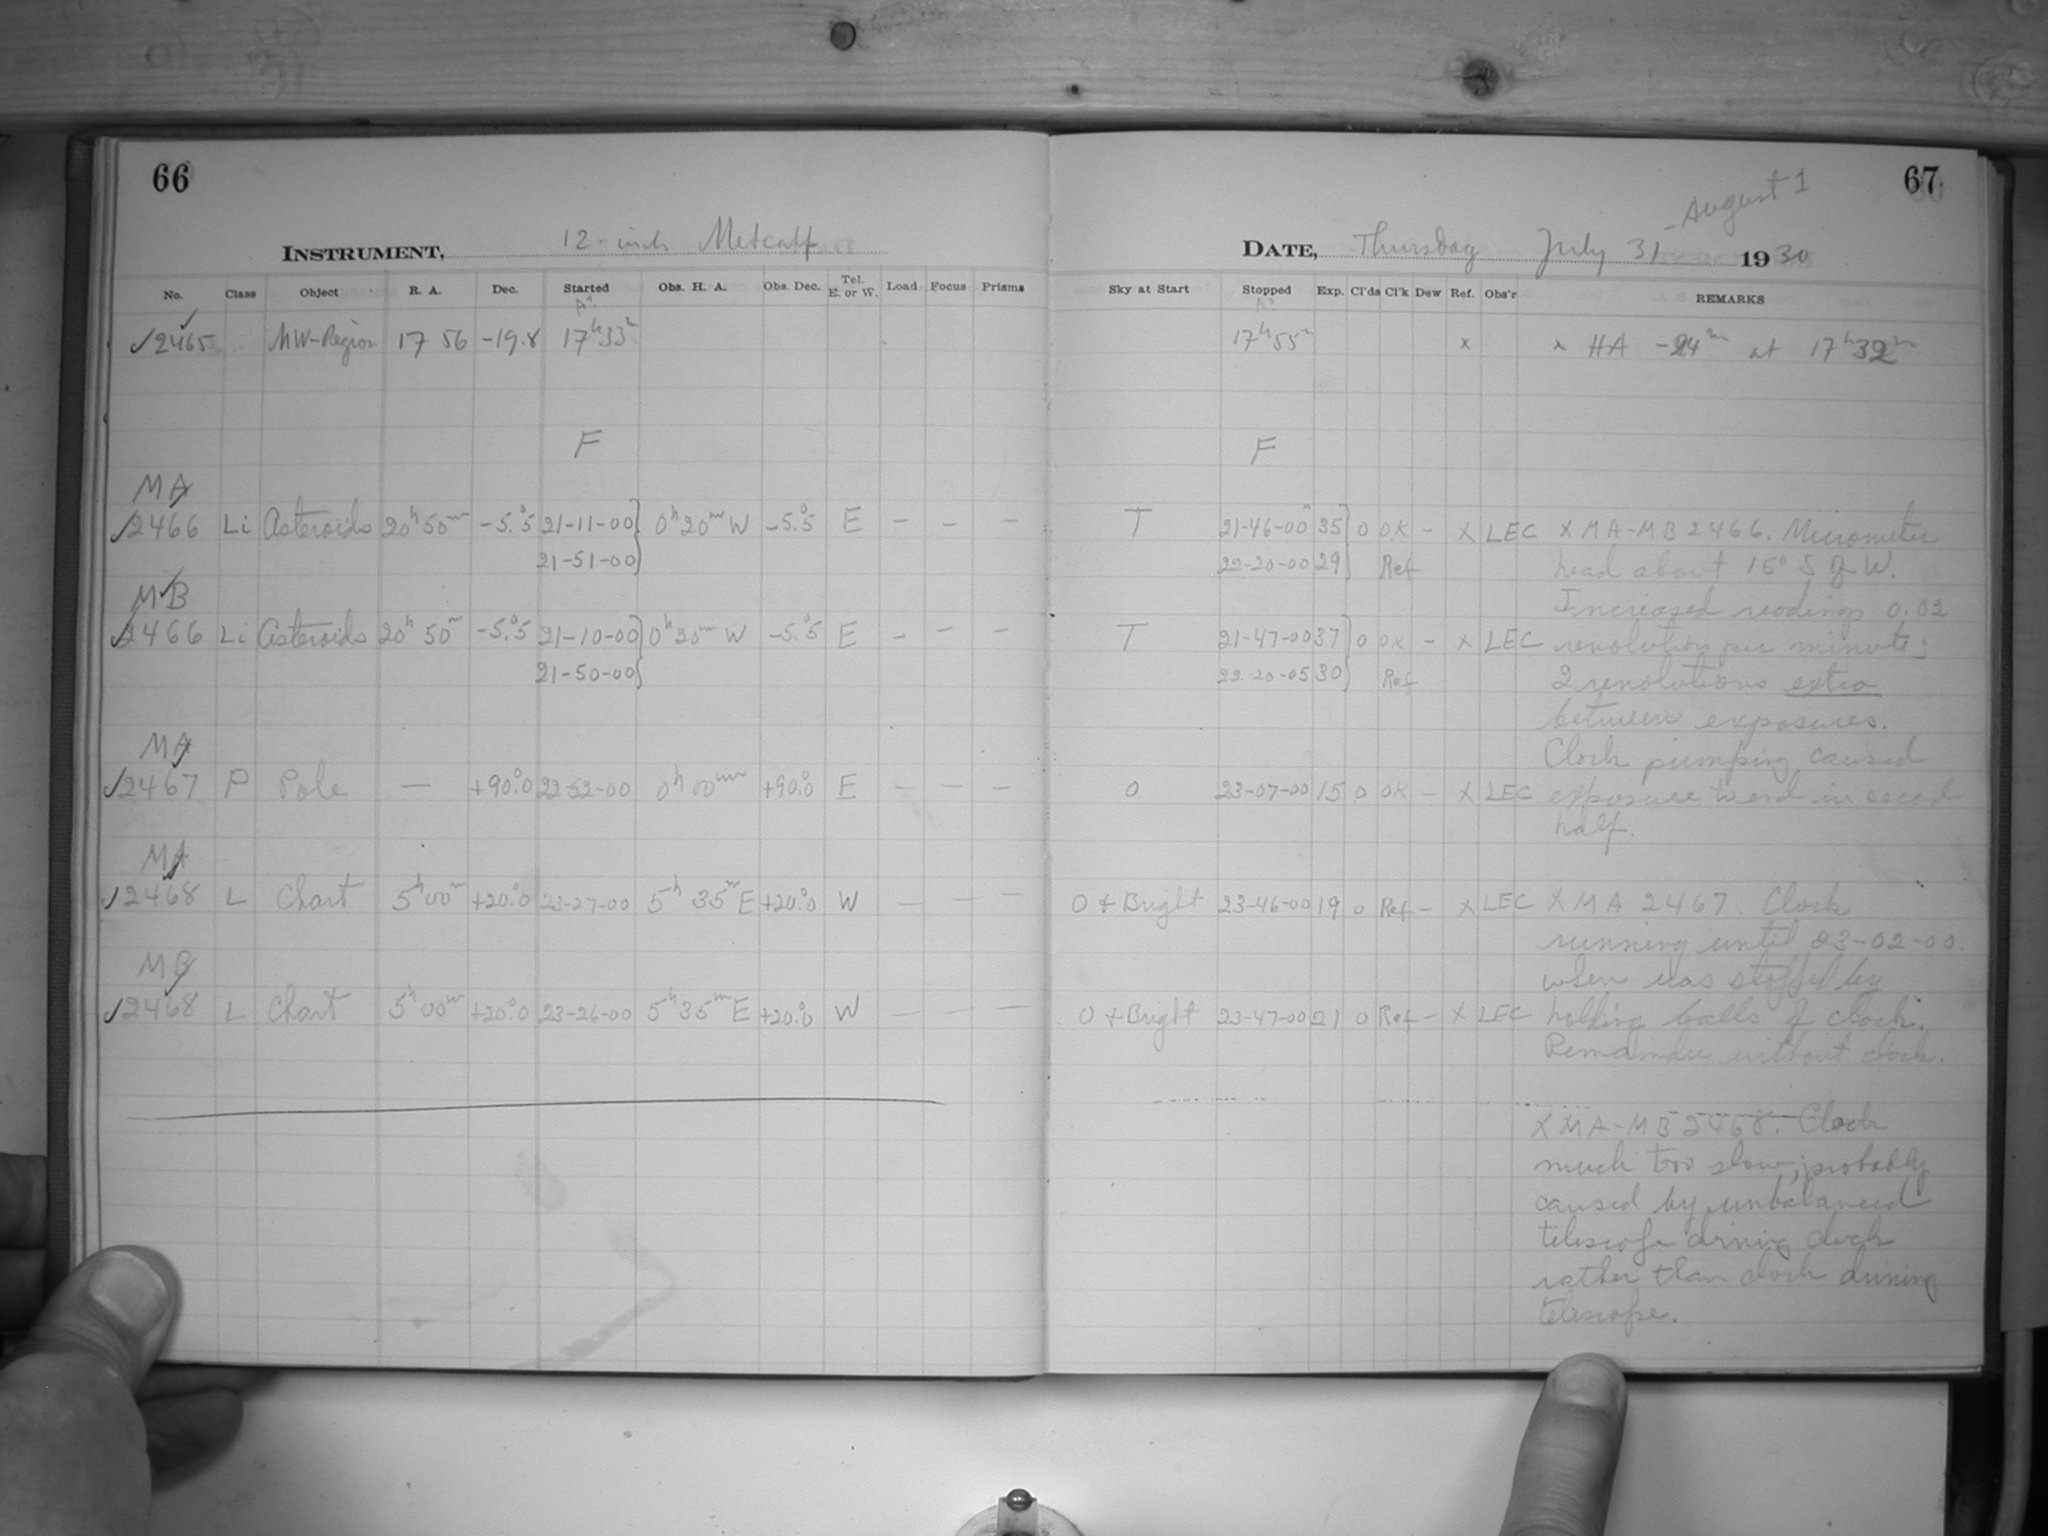 66
INSTRUMENT, 12-inch Metcalf
No. Class Object R. A. Dec. Started Obs. H. A. Obs. Dec. Tel. E. or W. Load Focus Prisms
2465 MW-Region 17 56 -19.8 17h 33m
F
MA
2466 Li Asteroids 20h 50m -5.°5 21-11-00 0h 20m W -5.°5 E - - -
21-51-00
MB
2466 Li Asteroids 20h 50m -5.°5 21-10-00 0h 20m W -5.°5 E - - -
21-50-00
MA
2467 P Pole — +90.°0 22-52-00 0h 00m +90.°0 E - - -
MA
2468 L Chart 5h 00m +20.°0 23-27-00 5h 35m E +20.°0 W - - -
MB
2468 L Chart 5h 00m +20.°0 23-26-00 5h 35m E +20.°0 W - - -
67
- August 1
DATE, Thursday July 31 1930
Sky at Start Stopped Exp. Cl'ds Cl'k Dew Ref. Obs'r REMARKS
17h 55m x x HA -24m at 17h 32m
F
T 21-46-00 35 0 OK - X LEC X MA-MB 2466. Micrometer
22-20-00 29 Ref head about 15° S of W.
Increased readings 0.02
T 21-47-00 37 0 OK - X LEC revolution per minute;
22-20-05 30 Ref 2 revolutions extra
between exposures.
Clock pumping caused
0 23-07-00 15 0 OK - X LEC exposure in
half.
0 + Bright 23-46-00 19 0 Ref - X LEC X MA 2467. Clock
running until 23-02-00.
when was stopped by
0 + Bright 23-47-00 21 0 Ref - X LEC holding balls of clock.
Remainder without clock.
X MA-MB 2468. Clock
much too slow; probably
caused by unbalanced
telescope driving clock
rather than clock driving
telescope.